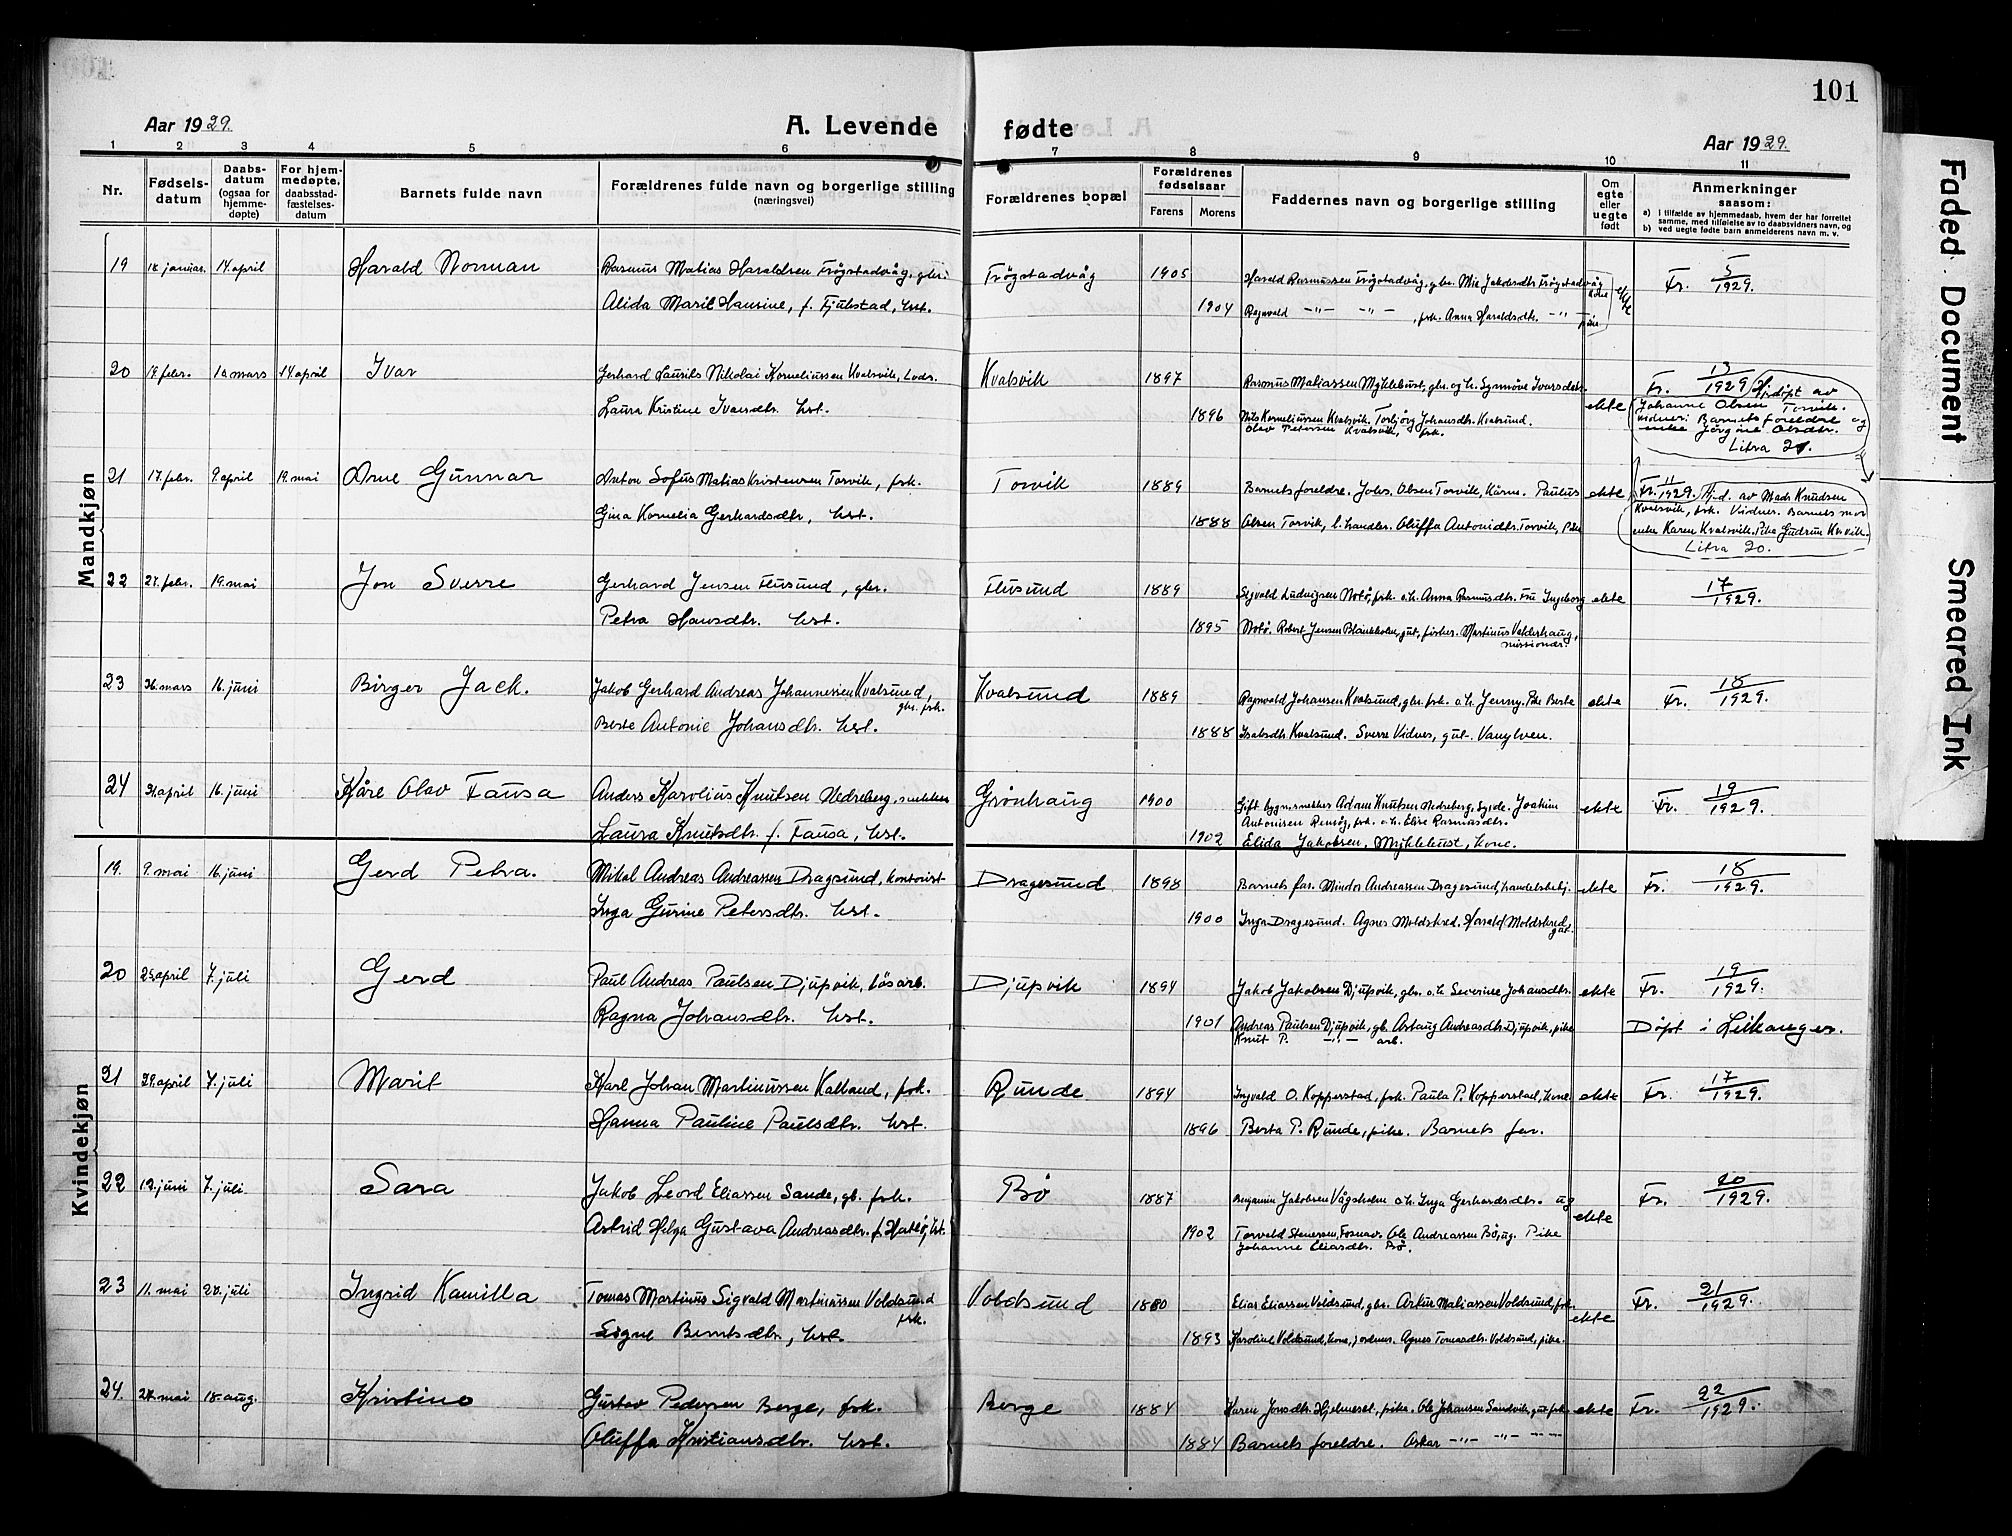 101
Aar 1929.
A. Levende fødte
Aar 1929.
1 2 3 4 5 6 7 8 9 10 11
Nr.
Fødsels-
datum
Daabs-
datum
(ogsaa for
hjemme-
døpte)
For hjem-
medøpte,
daabsstad-
fæstelses-
datum
Barnets fulde navn
Forældrenes fulde navn og borgerlige stilling
(næringsvei)
Forældrenes bopæl
Forældrenes
fødselsaar
Farens Morens
Faddernes navn og borgerlige stilling
Om
egte
eller
uegte
født
Anmerkninger
saasom:
a) I tilfælde av hjemmedaab, hvem der har forrettet
samme, med tilføielse av to daabsvidners navn, og
b) ved uegte fødte barn anmelderens navn m. v.
Mandkjøn
19 18 januar. 14 april Harald Norman Rasmus Matias Haraldsen Frøystadvåg, gbr. Frøystadvåg 1905 Harald Rasmussen Frøystadvåg, gbr. Mie Jakobsdtr. Frøystadvåg kone ekte Fr. 5/1929.
Alida Maril Hansine, f. Fjukstad, hst. 1904 Ragnvald -"- -"-, frk. Anna Haraldsdtr. -"- pike
20 14 febr. 10 mars 14 april Ivar Gerhard Laurits Nikolai Korneliussen Kvalsvik, lods. Kvalsvik 1897 Rasmus Matiassen Myklebust, gbr. og h. Synnøve Ivarsdatr. ekte Fr. 13/1929 Hj.døpt av
Laura Kristine Ivarsdtr. hst. 1896 Nils Korneliussen Kvalsvik. Torbjørg Johansdtr. Kvalsund.
Olav Petersen Kvalsvik, fsk.
Johanne Olsen Torvik.
vidner: Barnets foreldre og
enke Jørgine Olsdtr.
Litra 21.
21 17. febr. 9. april 19. mai Arne Gunnar Anton Sofus Matias Kristensen Torvik, fsk. Torvik 1889 Barnets foreldre. Johs. Olsen Torvik, kårm. Paulus ekte Fr. 11/1929. Hj.d. av Mads Knudsen
Gina Kornelia Gerhardsdtr, hst. 1888 Olsen Torvik, l. handler. Oluffa Antonidtr. Torvik, pike
Kvalsvik, fsk. Vidner. Barnets mor
enke Karen Kvalsvik. Pike Gudrun Kvalsvik.
Litra 20.
22 27. febr. 19. mai Jon Sverre Gerhard Jensen Flusund, gbr. Flusund 1889 Sigvald Ludvigsen Notø, fsk. o.h. Anna Rasmusdtr. Fru Ingeborg ekte 17/1929.
Petra Hansdtr. hst. 1895 Notø. Robert Jensen Blankholm, gut, fisker. Martinus Velderhaug,
missionær.
23 26. mars 16. juni Birger Jack. Jakob Gerhard Andreas Johannessen Kvalsund, Kvalsund 1889 Ragnvald Johansen Kvalsund, gbr. fsk. o.h. Jenny. Pike Berte ekte Fr. 18/1929.
gbr. fsk.
Berte Antonie Johansdtr. hst. 1888 Isaksdtr Kvalsund. Sverre Vidnes, gut. Vanylven.
24 21. april 16. juni Kåre Olav Fausa Anders Karolius Knutsen Nedreberg, snekker Grønhaug 1900 Gift bygn.snekker Adam Knutsen Nedreberg, Sykk. Joakim ekte Fr. 19/1929.
Antonisen Remøy, fsk. o.h. Elise Rasmusdtr.
Laura Knutsdtr. f. Fausa, hst. 1902 Elida Jakobsen, Myklebust, kone.
Kvindekjøn
19. 9. mai 16. juni Gerd Petra. Mikal Andreas Andreassen Dragsund, kontorist Dragesund 1898 Barnets far. Mindor Andreassen Dragesund, handelsbetj. ekte Fr. 18/1929.
Inga Gurine Petersdtr. hst. 1900 Inga Dragesund. Agnes Moldskred. Harald Moldskred,
gut.
20 25. april 7. juli Gerd Paul Andreas Paulsen Djupvik, løsarb. Djupvik 1894 Jakob Jakobsen Djupvik, gbr. o.h. Severine Johansdtr. ekte Fr. 19/1929.
Ragna Johansdtr. hst. 1901 Andreas Paulsen Djupvik, gb. Aslaug Andreasdtr. Djupvik, pike Døpt i Leikanger.
Knut P. -"- arb.
21 29. april 7. juli Marit Karl Johan Martinussen Kalland, fsk. Runde 1894 Ingvald O. Kopperstad, fsk. Paula P. Kopperstad, kone. ekte Fr. 17/1929.
Hanna Pauline Paulsdtr. hst. 1896 Berta P. Runde, pike. Barnets far.
22 12. juni 7. juli Sara Jakob Leord Eliassen Sande, gb. fsk. Bø 1887 Benjamin Jakobsen Vågsholm o.h. Inga Gerhardsdtr. ug ekte Fr. 20/1929.
Astrid Helga Gustava Andreasdtr. f. Hatlø, hst. 1902 Torvald Stenersen, Fosnav. Ole Andreassen Bø, ug. Pike
Johanne Eliasdtr. Bø.
23 11. mai 20. juli Ingrid Kamilla Tomas Martinus Sigvald Martinussen Voldsund Voldsund 1880 Elias Eliassen Voldsund, gbr. Artur Matiassen Voldsund, fsk. ekte Fr. 21/1929.
fsk.
Signe Berntsdtr, hst. 1893 Karoline Voldsund, kone, jordmor. Agnes Tomasdtr. Voldsund, pike.
24. 24. mai 18. aug. Kristine Gustav Pedersen Berge, fsk. Berge 1884 Karen Jonsdtr. Hjelmeset, pike. Ole Johansen Sandvik, gut fsk. ekte Fr. 22/1929.
Oluffa Kristiansdtr. hst. 1884 Barnets foreldre. Oskar -"- -"- -"-
Faded Document
Smeared Ink